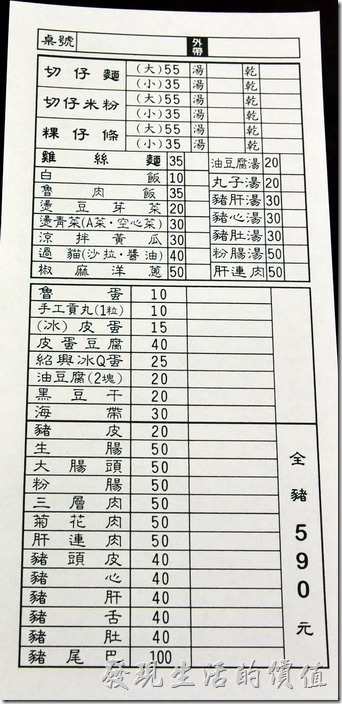 桌號 外帶
切仔麵 (大)55 湯 乾
(小)35 湯 乾
切仔米粉 (大)55 湯 乾
(小)35 湯 乾
粿仔條 (大)55 湯 乾
(小)35 湯 乾
雞絲麵 35 油豆腐湯 20
白飯 10 丸子湯 20
魯肉飯 35 豬肝湯 30
燙豆芽菜 20 豬心湯 30
燙青菜(A菜·空心菜) 30 豬肚湯 50
涼拌黃瓜 30 粉腸湯 50
過貓(沙拉·醬油) 40 肝連肉 50
椒麻洋蔥 50
魯蛋 10
手工貢丸(1粒) 10
(冰)皮蛋 15
皮蛋豆腐 40
紹興冰Q蛋 25
油豆腐(2塊) 20
黑豆干 20
海帶 30
豬皮 20
生腸 50
大腸頭 50
粉腸 50
三層肉 50
菊花肉 50
肝連肉 50
豬頭皮 40
豬心 40
豬肝 40
豬舌 40
豬肚 40
豬尾巴 100
全豬590元
發現生活的價值